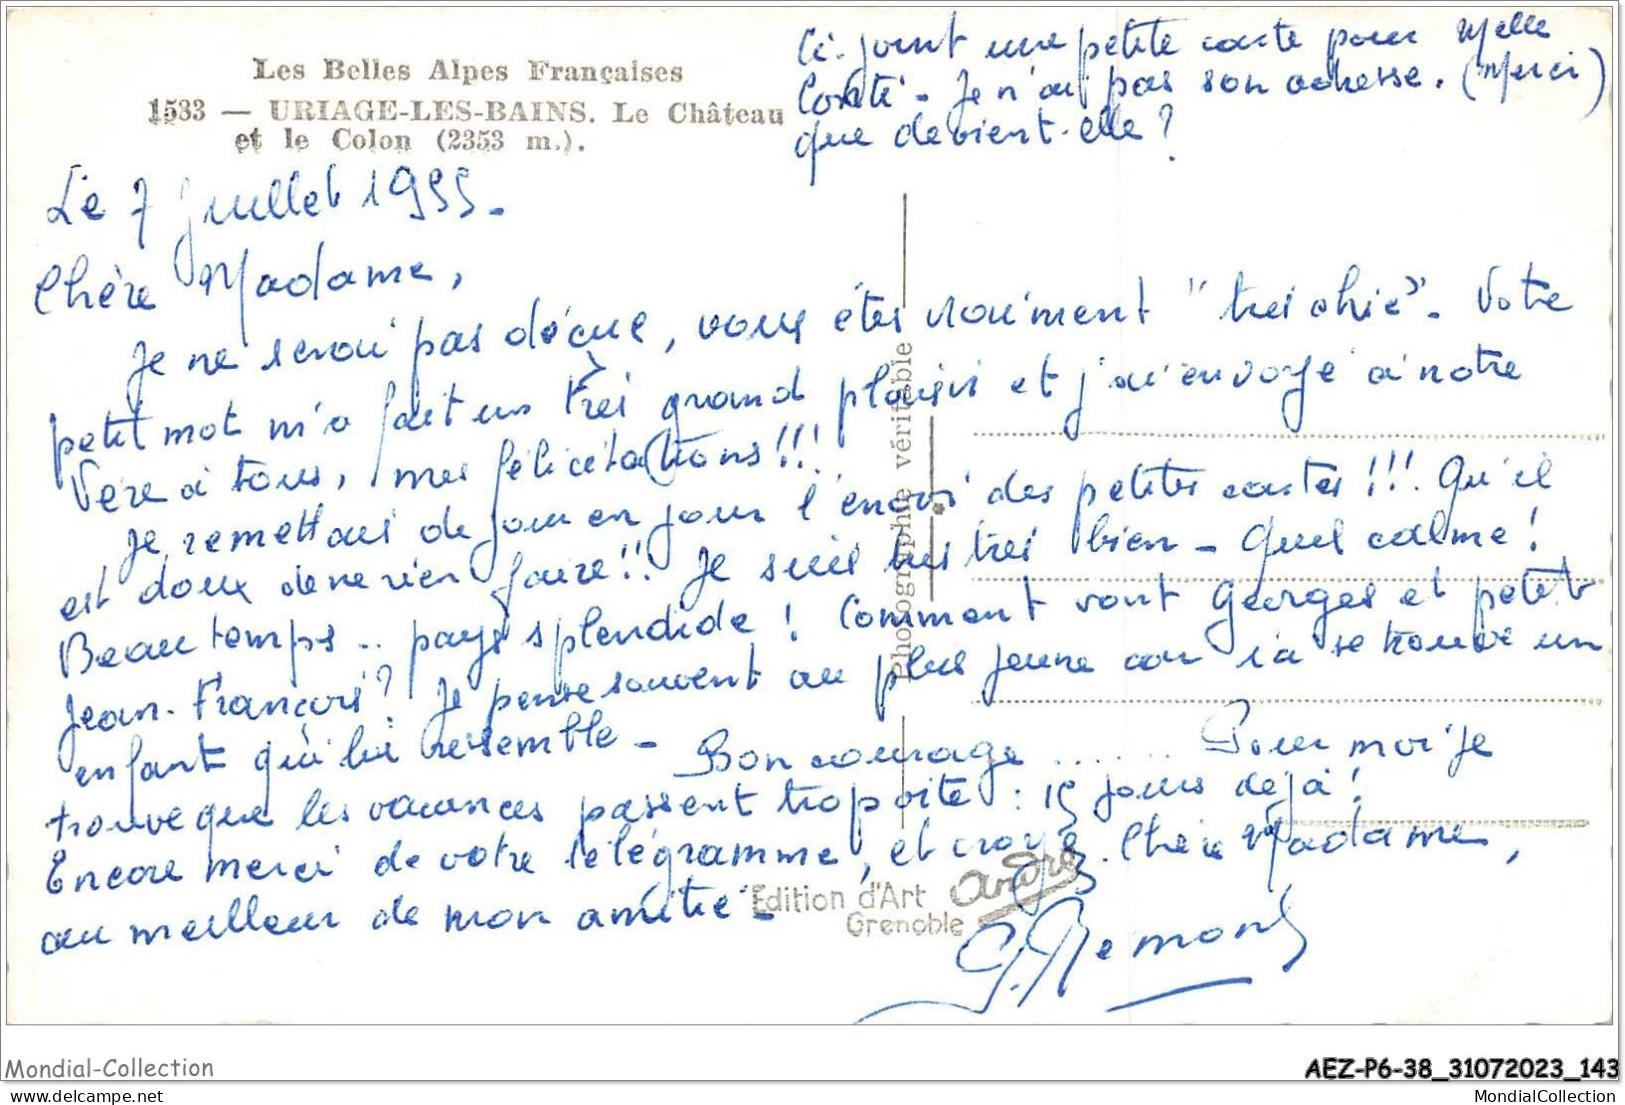 Les Belles Alpes Françaises
1533 — URIAGE-LES-BAINS. Le Château
et le Colon (2353 m.).
Ci-joint une petite carte pour Melle
Conté - Je n'ai pas son adresse. (Merci)
que devient-elle ?
Le 7 Juillet 1955.
Chère Madame,
Je ne serai pas déçue, vous êtes vraiment "très chic". Votre
petit mot m'a fait un très grand plaisir et j'ai envoyé à notre
Vère à tous, mes félicitations!!!
Je remettais de jour en jour l'envoi des petites cartes!!! Qu'il
est doux de ne rien faire!! Je suis très très bien - Quel calme!
Beau temps .. pays splendide! Comment vont Georges et petit
Jean-François? Je pense souvent au plus jeune car ici se trouve un
enfant qui lui ressemble - Bon courage ....... Pour moi je
trouve que les vacances passent trop vite : 15 jours déjà!
Encore merci de votre télégramme, et croyez, Chère Madame,
au meilleur de mon amitié -
G. Remond
Photographie véritable
Edition d'Art André
Grenoble
Mondial-Collection
AEZ-P6-38_31072023_143
MondialCollection.com
MondialCollection